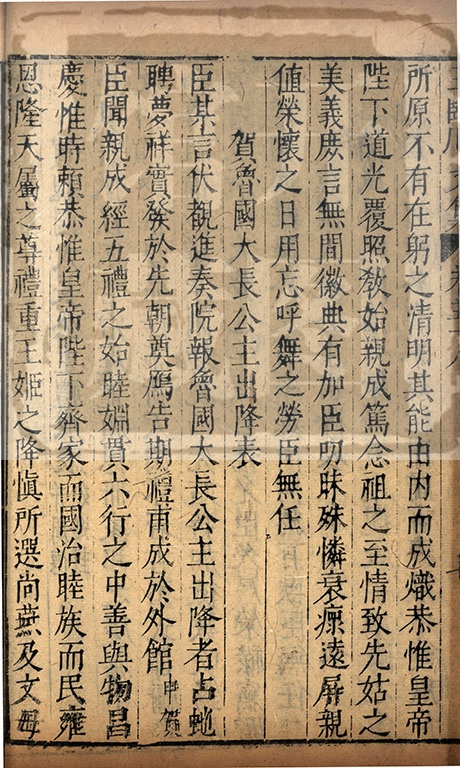 所原不有在躬之清明其能由内而成熾恭惟皇帝
陛下道光覆照敎始親成篤念祖之至情致先姑之
美義庶言無間徽典有加臣叨昧殊憐衰瘝遠屏親
值榮懷之日用忘呼舞之勞臣無任
賀魯國大長公主出降表
臣某言伏觀進奏院報魯國大長公主出降者占虵
聘夢祥實發於先朝奠鴈告期禮甫成於外館申賀
臣聞親成經五禮之始睦婣貫六行之中善與物昌
慶惟時賴恭惟皇帝陛下齊家而國治睦族而民雍
恩隆天屬之尊禮重王姬之降慎所選尚燕及文母